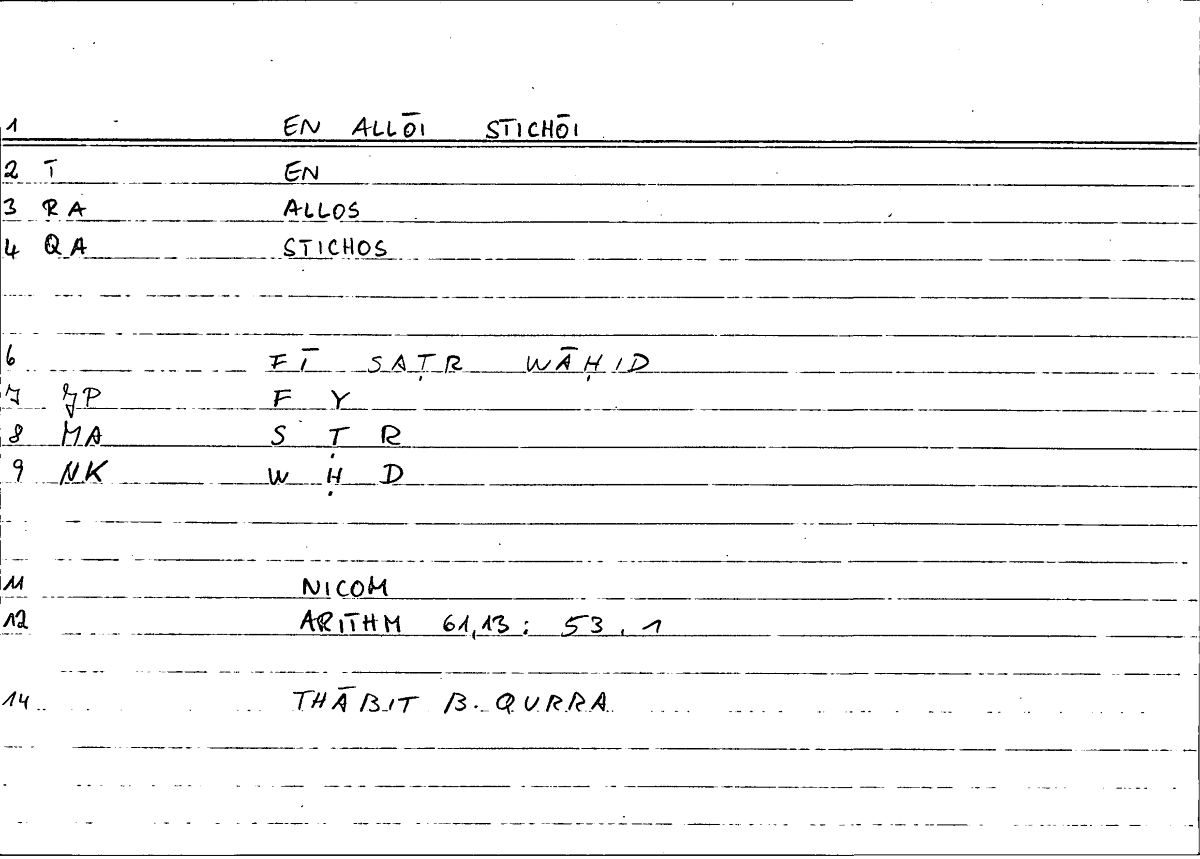 1 EN ALLŌI STICHŌI
2 T EN
3 RA ALLOS
4 QA STICHOS
6 FĪ SAṬR WĀḤID
7 JP F Y
8 MA S Ṭ R
9 NK W Ḥ D
11 NICOM
12 ARITHM 61,13 : 53.1
14 THĀBIT B. QURRA